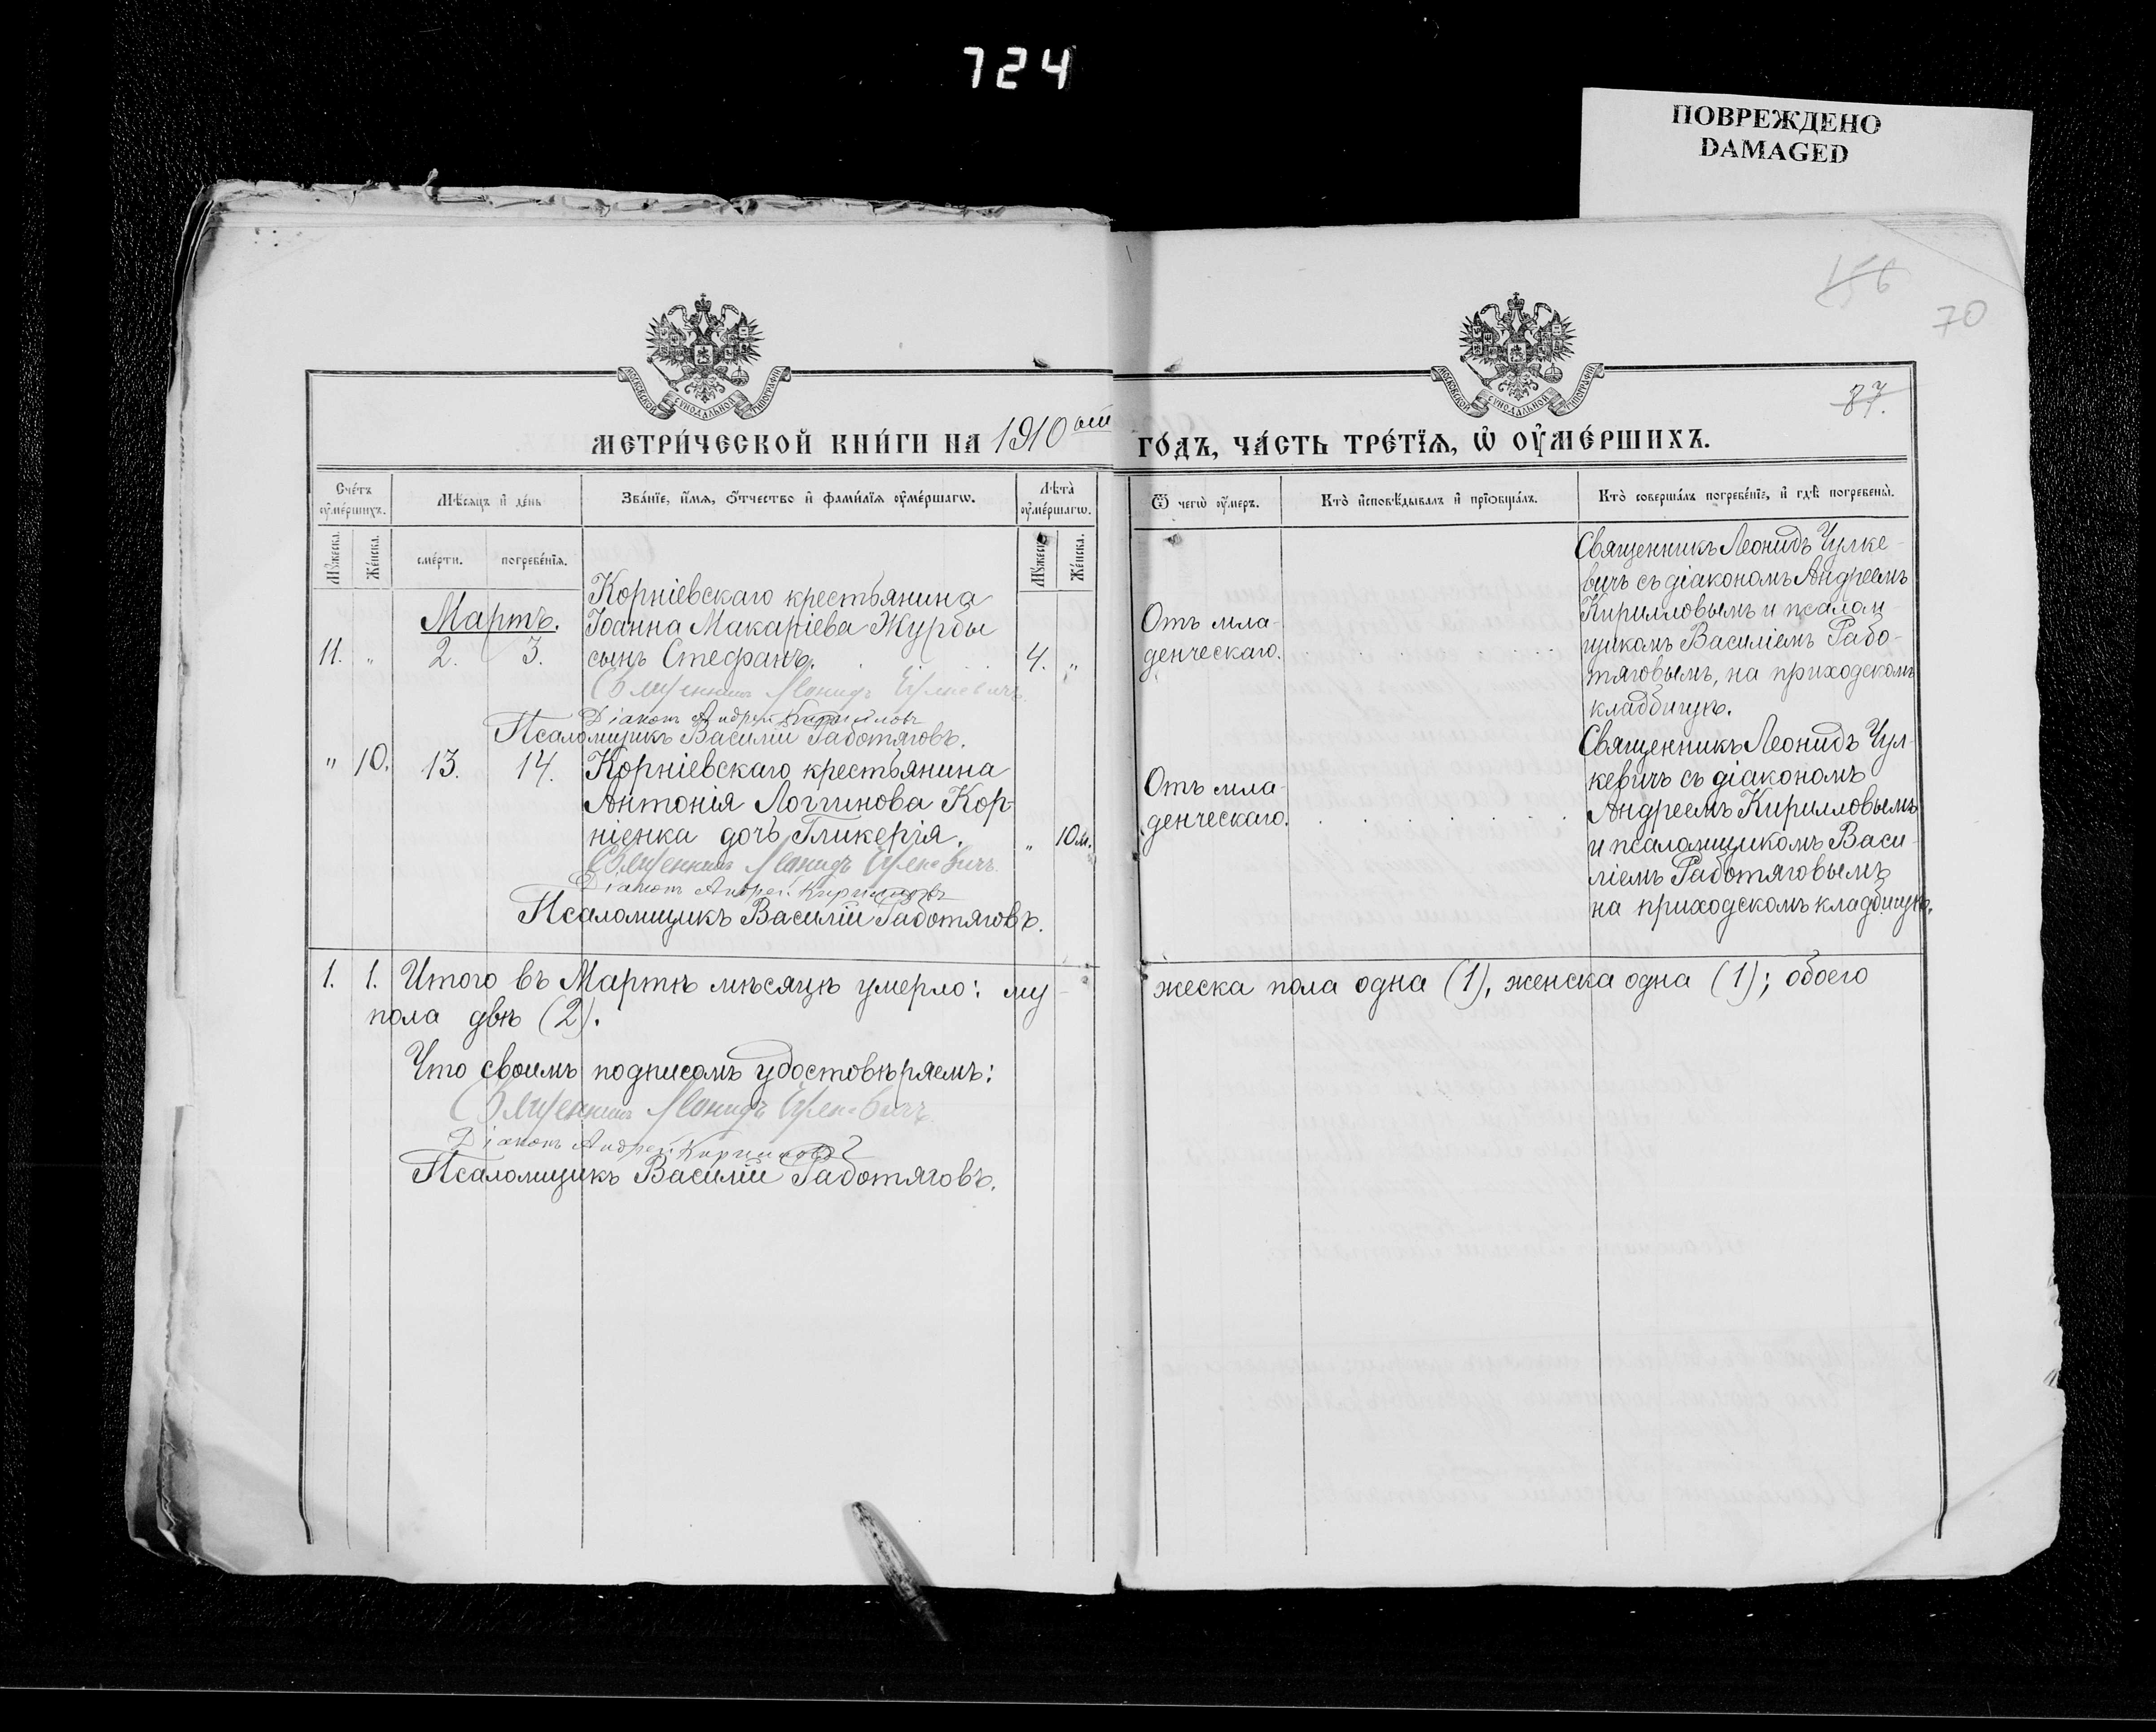 724
ПОВРЕЖДЕНО
DAMAGED
156
70
87.
МОСКОВСКОЙ СУНОДАЛЬНОЙ ТИПОГРАФІИ
МОСКОВСКОЙ СУНОДАЛЬНОЙ ТИПОГРАФІИ
МЕТРИ́ЧЕСКОЙ КНИ́ГИ НА 1910ый
ГО́ДЪ, ЧА́СТЬ ТРЕ́ТІѦ, Ѡ ОУ҆МЕ́РШИХЪ.
Сче́тъ оу҆ме́ршихъ.
Мѣ́сѧцъ и҆ де́нь
Зва́нїе, и҆́мѧ, ѻ҆́тчество и҆ фами́лїѧ оу҆ме́ршагѡ.
Лѣ́та оу҆ме́ршагѡ.
Ѿ чегѡ̀ оу҆́меръ.
Кто̀ и҆сповѣ́дывалъ и҆ прїѡбща́лъ.
Кто̀ соверша́лъ погребе́нїе, и҆ гдѣ̀ погребены̀.
Мꙋ́жеска.
Же́нска.
сме́рти.
погребе́нїѧ.
Мꙋ́жеска.
Же́нска.
Мартъ.
11. " 2. 3.
Корніевскаго крестьянина
Іоанна Макаріева Журбы
сынъ Стефанъ. 4. "
Священникъ Леонидъ Чулкевичъ
Діаконъ Андрей Кирилловъ
Псаломщикъ Василій Работяговъ.
Отъ мла-
денческаго.
Священникъ Леонидъ Чулке-
вичъ съ діакономъ Андреемъ
Кирилловымъ и псалом
щикомъ Василіемъ Рабо-
тяговымъ, на приходскомъ
кладбищѣ.
" 10. 13. 14. Корніевскаго крестьянина
Антонія Логгинова Кор-
ніенка дочь Гликерія. " 10 м.
Священникъ Леонидъ Чулкевичъ.
Діаконъ Андрей Кирилловъ
Псаломщикъ Василій Работяговъ.
Отъ мла-
денческаго.
Священникъ Леонидъ Чул-
кевичъ съ діакономъ
Андреемъ Кирилловымъ
и псаломщикомъ Васи-
ліемъ Работяговымъ
на приходскомъ кладбищѣ.
1. 1. Итого въ Мартѣ мѣсяцѣ умерло: му-
жеска пола одна (1), женска одна (1); обоего
пола двѣ (2).
Что своимъ подписомъ удостовѣряемъ:
Священникъ Леонидъ Чулкевичъ.
Діаконъ Андрей Кирилловъ
Псаломщикъ Василій Работяговъ.